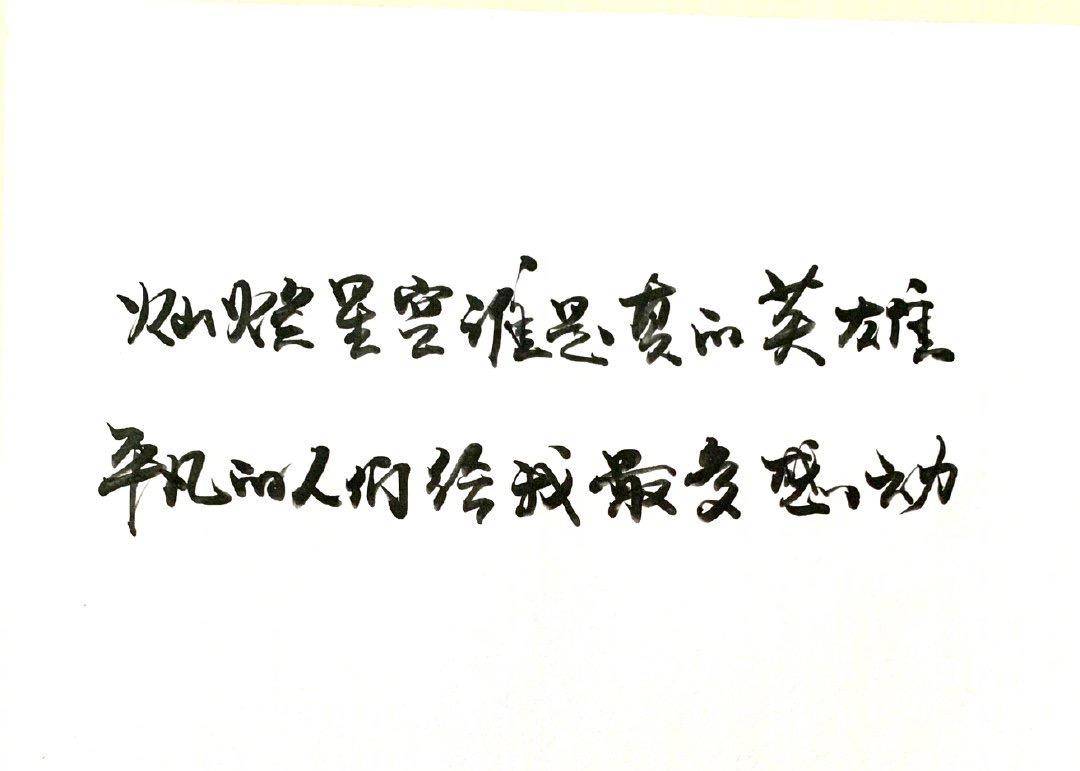 灿烂星空谁是真的英雄
平凡的人们给我最多感动